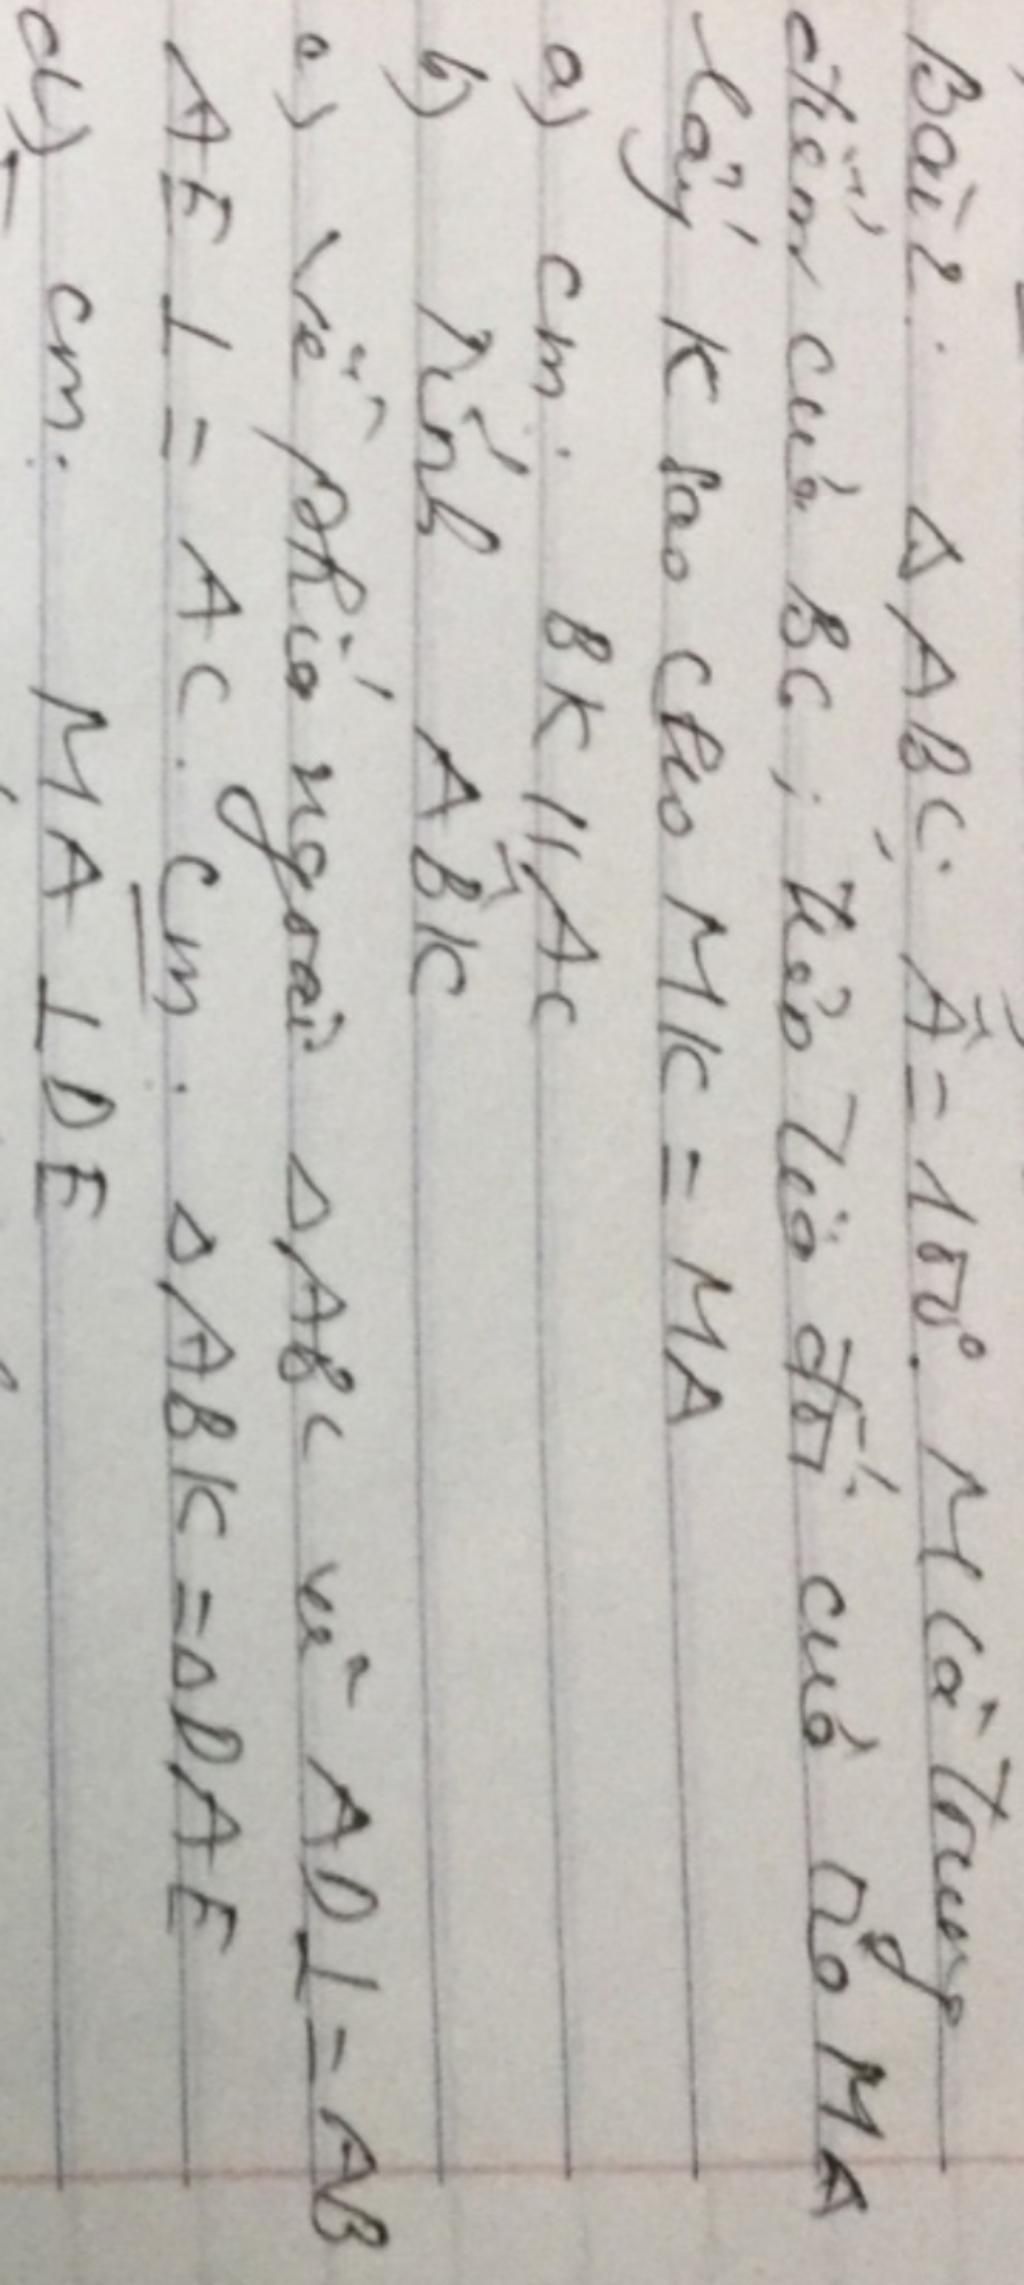 Bài 2. Δ ABC. Â = 100°. M là trung
điểm của BC; trên tia đối của tia MA
lấy K sao cho MK = MA
a) cm: BK // AC
b) Tính ABK
c) Vẽ phía ngoài Δ ABC vẽ AD ⊥ = AB
AE ⊥ = AC. Cm: Δ ABK = Δ DAE
d) cm. MA ⊥ DE